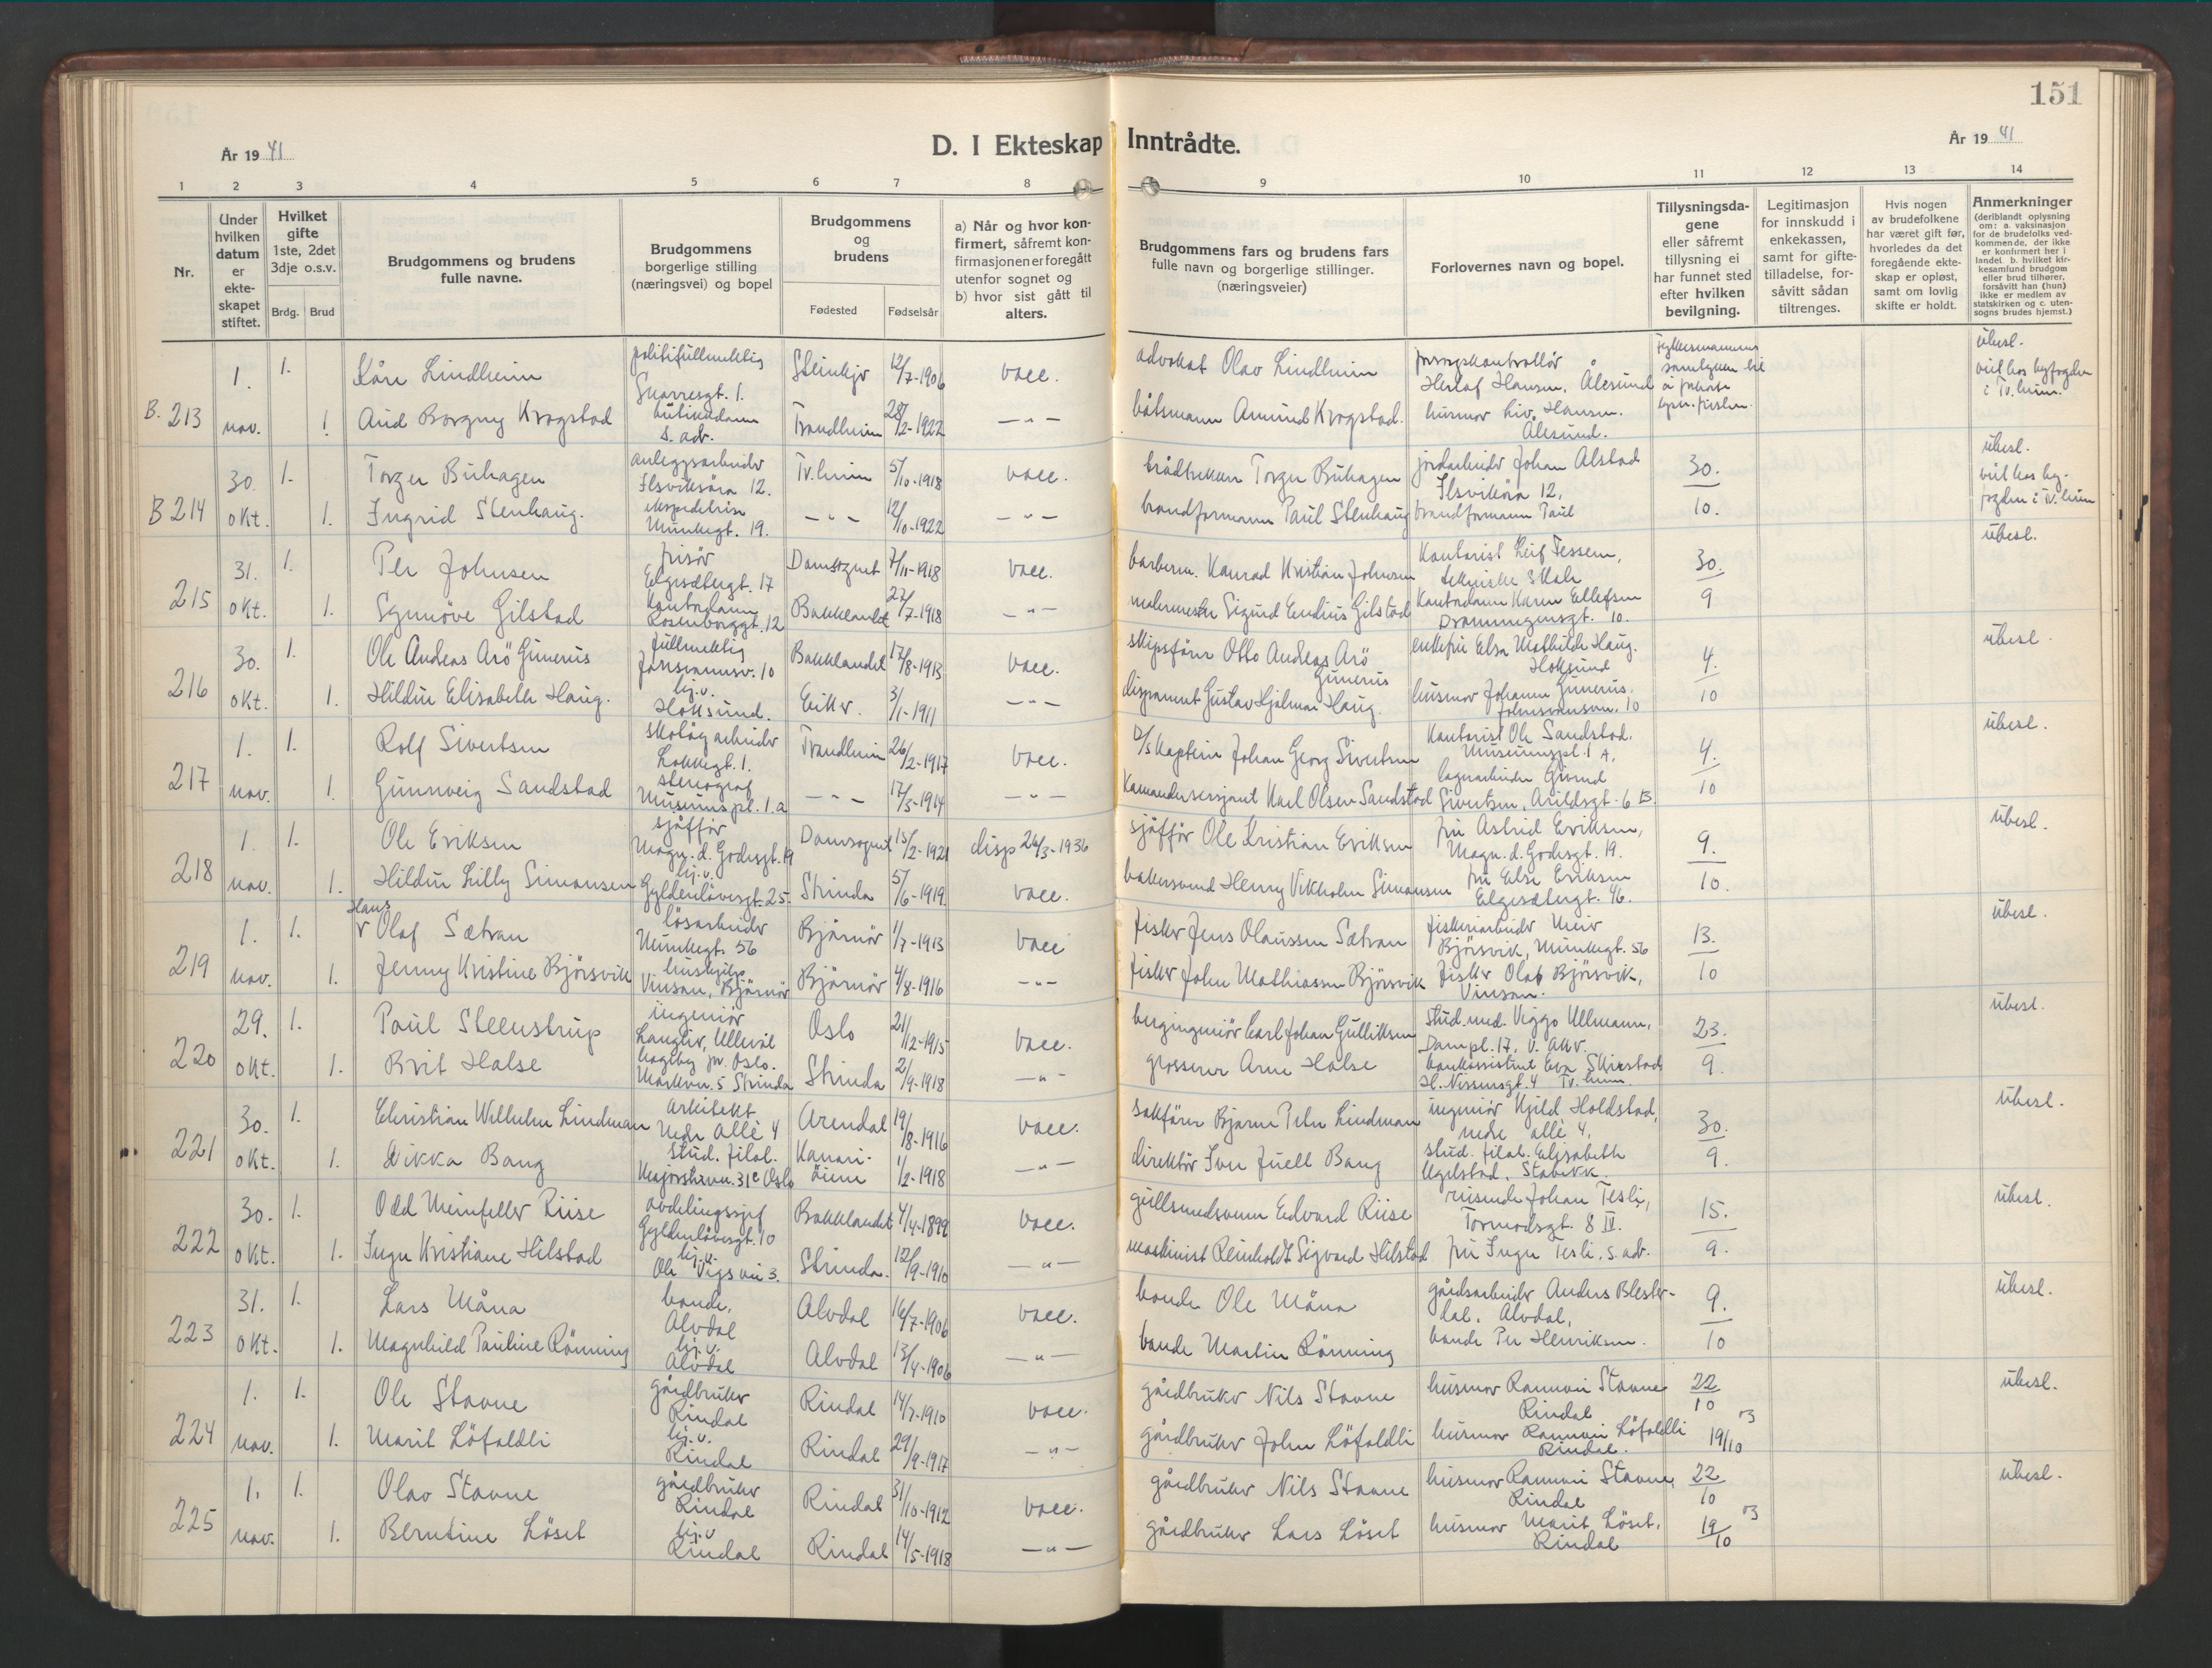 151
År 19 41
D. I Ekteskap Inntrådte.
År 19 41
1 2 3 4 5 6 7 8 9 10 11 12 13 14
Nr.
Under hvilken datum er ekte-skapet stiftet.
Hvilket gifte 1ste, 2det 3dje o.s.v.
Brdg. Brud
Brudgommens og brudens fulle navne.
Brudgommens borgerlige stilling (næringsvei) og bopel
Brudgommens og brudens
Fødested Fødselsår
a) Når og hvor kon-firmert, såfremt kon-firmasjonen er foregått utenfor sognet og b) hvor sist gått til alters.
Brudgommens fars og brudens fars fulle navn og borgerlige stillinger. (næringsveier)
Forlovernes navn og bopel.
Tillysningsda-gene eller såfremt tillysning ei har funnet sted efter hvilken bevilgning.
Legitimasjon for innskudd i enkekassen, samt for gifte-tilladelse, for-såvitt sådan tiltrenges.
Hvis nogen av brudefolkene har været gift før, hvorledes da det foregående ekte-skap er opløst, samt om lovlig skifte er holdt.
Anmerkninger (deriblandt oplysning om: a. vaksinasjon for de brudefolks ved-kommende, der ikke er konfirmert her i landet. b. hvilket kir-kesamfund brudgom eller brud tilhører, forsåvitt han (hun) ikke er medlem av statskirken og c. uten-sogns brudes hjemst.)
B. 213 1. 1. Kåre Lindheim politifullmektig Steinkjer 12/7-1906 vacc. advokat Olav Lindheim Herlof Hansen, Ålesund ubesl.
nov. 1. Aud Borgny Krogstad s. adr. Trondheim 28/2-1922 -"- båtsmann Amund Krogstad. husmor Liv Hansen. Ålesund.
B 214 30. 1. Torger Buhagen anleggsarbeider Ilsvikøra 12. Tr.heim 5/10-1918 vacc. Torger Buhagen jordarbeider Johan Alstad Ilsvikøra 12, 30. ubesl.
okt. 1. Ingrid Stenhaug. ekspeditrise Munkegt. 19. -"- 12/10-1922 -"- brandformann Paul Stenhaug brandformann Paul 10.
215 31. 1. Per Johnsen frisør Elgesætergt. 17 Domsognet 7/11-1918 vacc. barberm. Konrad Kristian Johnsen Kontorist Leif Tessem, tekniske skole 30. ubesl.
okt. 1. Synnöve Gilstad Kontordame Rosenborggt. 12 Bakklandet 22/7-1918 -"- malermester Sigurd Emilius Gilstad Kontordame Karen Ellefsen Dronningensgt. 10. 9
216 30. 1. Ole Andreas Arö Gunerius fullmektig 10 Bakklandet 17/8-1913 vacc. skipsfører Otto Andreas Arö Gunerius enkefru Elsa Mathilde Haug. Hoksund 4. ubesl.
okt. 1. Hildur Elisabeth Haug. hj.v. Hoksund. Eiker. 3/1-1911 -"- disponent Gustav Hjalmar Haug. husmor Johanne Gunerius. 10 10
217 1. 1. Rolf Sivertsen skotøyarbeider Lökkegt. 1. Trondheim 26/2-1917 vacc. D/S kaptein Johan Georg Sivertsen Kontorist Ole Sandstad. Museumspl. 1 A, 4. ubesl.
nov. 1. Gunnveig Sandstad stenograf Museumspl. 1.a -"- 17/3-1914 -"- Kommandersersjant Karl Olsen Sandstad lagerarbeider Sivertsen, Arildsgt. 6 B. 10
218 1. 1. Ole Eriksen sjåfför Magn. d. Godesgt. 19 Domsognet 15/2-1921 disp 26/3-1936 sjåfför Ole Kristian Eriksen fru Astrid Eriksen, Magn. d. Godesgt. 19. 9. ubesl.
nov. 1. Hildur Lilly Simonsen hj.v. Gyldenlövesgt. 25. Strinda 5/6-1919. vacc. bakersvend Henry Vikholm Simonsen fru Else Eriksen Elgesætergt. 46. 10.
219 1. 1. Hans Olaf Sætran lösarbeider Munkegt. 56 Bjørnör 1/7-1913 vacc fisker Jens Olaussen Sætran fiskeriarbeider Meier Björsvik, Munkegt. 56 13. ubesl.
nov. 1. Jenny Kristine Björsvik hushjelp Vinsan, Bjørnör Bjørnör 4/8-1916 -"- fisker John Mathiassen Björsvik fisker Olaf Björsvik, Vinsan. 10
220 29. 1. Paul Steenstrup ingeniör Ullevål hageby pr. Oslo. Oslo 21/12-1915 vacc. bergingeniör Carl Johan Gulliksen stud. med. Viggo Ullmann, Dampl. 17, 23. ubesl.
okt. 1. Brit Halse Markvn. 5 Strinda Strinda 2/9-1918 -"- grosserer Arne Halse bankassistent Eva Skirstad H. Nissensgt. 4 Tr.heim. 9.
221 30. 1. Christian Wilhelm Lindman arkitekt Nedre Allè 4 Arendal 19/8-1916 vacc. sakfører Bjarne Peter Lindman ingeniör Kjild Holdstad, nedre allè 4. 30. ubesl.
okt. 1. Dikka Bang stud. filol. Majorstuvn. 31c Oslo Kanari-öiene 1/2-1918 -"- direktör Iver Juell Bang stud. filol. Elisabeth Egilstad, Stabekk. 9.
222 30. 1. Odd Meinfeller Riise avdelingssjef Gyldenlövesgt. 10 Bakklandet 4/4-1899 vacc. gullsmedsvenn Edvard Riise reisende Johan Tesli, Tormodsgt. 8 IV. 15. ubesl.
okt. 1. Inga Kristiane Hilstad hj.v. Ole Vigs vei 3. Strinda. 12/9-1910 -"- maskinist Reinholdt Sigvard Hilstad fru Inga Tesli, s. adr. 9.
223 31. 1. Lars Måna bonde, Alvdal Alvdal 16/7-1906 vacc. bonde Ole Måna gårdsarbeider Anders Blester-dal. Alvdal, 9. ubesl.
okt. 1. Magnhild Pauline Rönning hj.v. Alvdal Alvdal 13/4-1906 -"- bonde Martin Rönning bonde Per Henriksen. 10
224 1. 1. Ole Stavne gårdbruker Rindal Rindal 14/7-1910 vacc. gårdbruker Nils Stavne husmor Rannvei Stavne Rindal 22/10 ubesl.
nov. 1. Marit Löfaldli hj.v. Rindal Rindal 29/9-1917 -"- gårdbruker John Löfaldli husmor Rannvei Löfaldli Rindal. 19/10
225 1. 1. Olav Stavne gårdbruker Rindal Rindal 31/10-1912 vacc. gårdbruker Nils Stavne husmor Rannvei Stavne, Rindal 22/10 ubesl.
nov. 1. Berntine Löset hj.v Rindal Rindal 14/5-1918 -"- gårdbruker Lars Löset husmor Marit Löset, Rindal 19/10